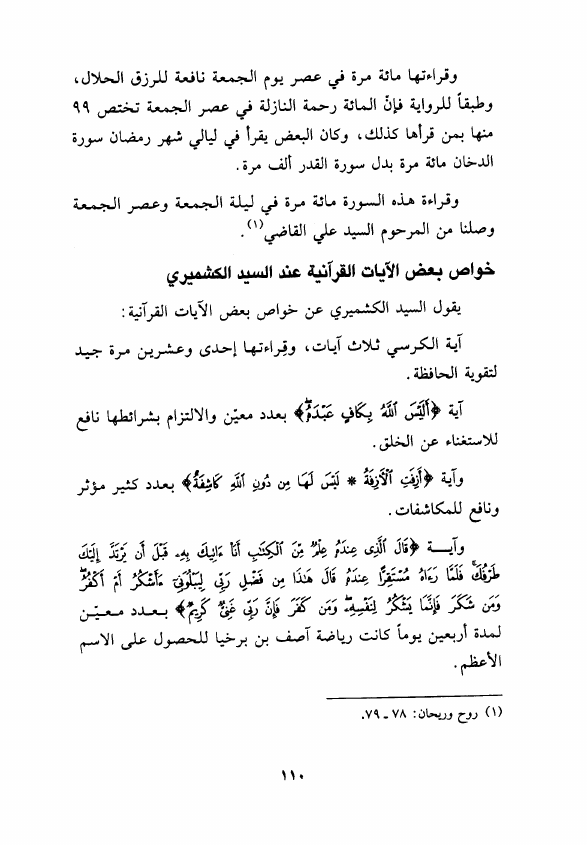 وقراءتها مائة مرة في عصر يوم الجمعة نافعة للرزق الحلال،
وطبقاً للرواية فإنّ المائة رحمة النازلة في عصر الجمعة تختص ٩٩
منها بمن قرأها كذلك، وكان البعض يقرأ في ليالي شهر رمضان سورة
الدخان مائة مرة بدل سورة القدر ألف مرة.
وقراءة هذه السورة مائة مرة في ليلة الجمعة وعصر الجمعة
وصلنا من المرحوم السيد علي القاضي(١).
خواص بعض الآيات القرآنية عند السيد الكشميري
يقول السيد الكشميري عن خواص بعض الآيات القرآنية:
آية الكرسي ثلاث آيات، وقراءتها إحدى وعشرين مرة جيد
لتقوية الحافظة.
آية ﴿أَلَيْسَ اللَّهُ بِكَافٍ عَبْدَهُ﴾ بعدد معيّن والالتزام بشرائطها نافع
للاستغناء عن الخلق.
وآية ﴿أَزِفَتِ الْآزِفَةُ * لَيْسَ لَهَا مِن دُونِ اللَّهِ كَاشِفَةٌ﴾ بعدد كثير مؤثر
ونافع للمكاشفات.
وآيــة ﴿قَالَ الَّذِي عِندَهُ عِلْمٌ مِّنَ الْكِتَابِ أَنَا ءَاتِيكَ بِهِ قَبْلَ أَن يَرْتَدَّ إِلَيْكَ
طَرْفُكَ فَلَمَّا رَءَاهُ مُسْتَقِرًّا عِندَهُ قَالَ هَٰذَا مِن فَضْلِ رَبِّي لِيَبْلُوَنِي ءَأَشْكُرُ أَمْ أَكْفُرُ
وَمَن شَكَرَ فَإِنَّمَا يَشْكُرُ لِنَفْسِهِ وَمَن كَفَرَ فَإِنَّ رَبِّي غَنِيٌّ كَرِيمٌ﴾ بعدد معيّن
لمدة أربعين يوماً كانت رياضة آصف بن برخيا للحصول على الاسم
الأعظم.
(١) روح وريحان: ٧٨ ـ ٧٩.
١١٠